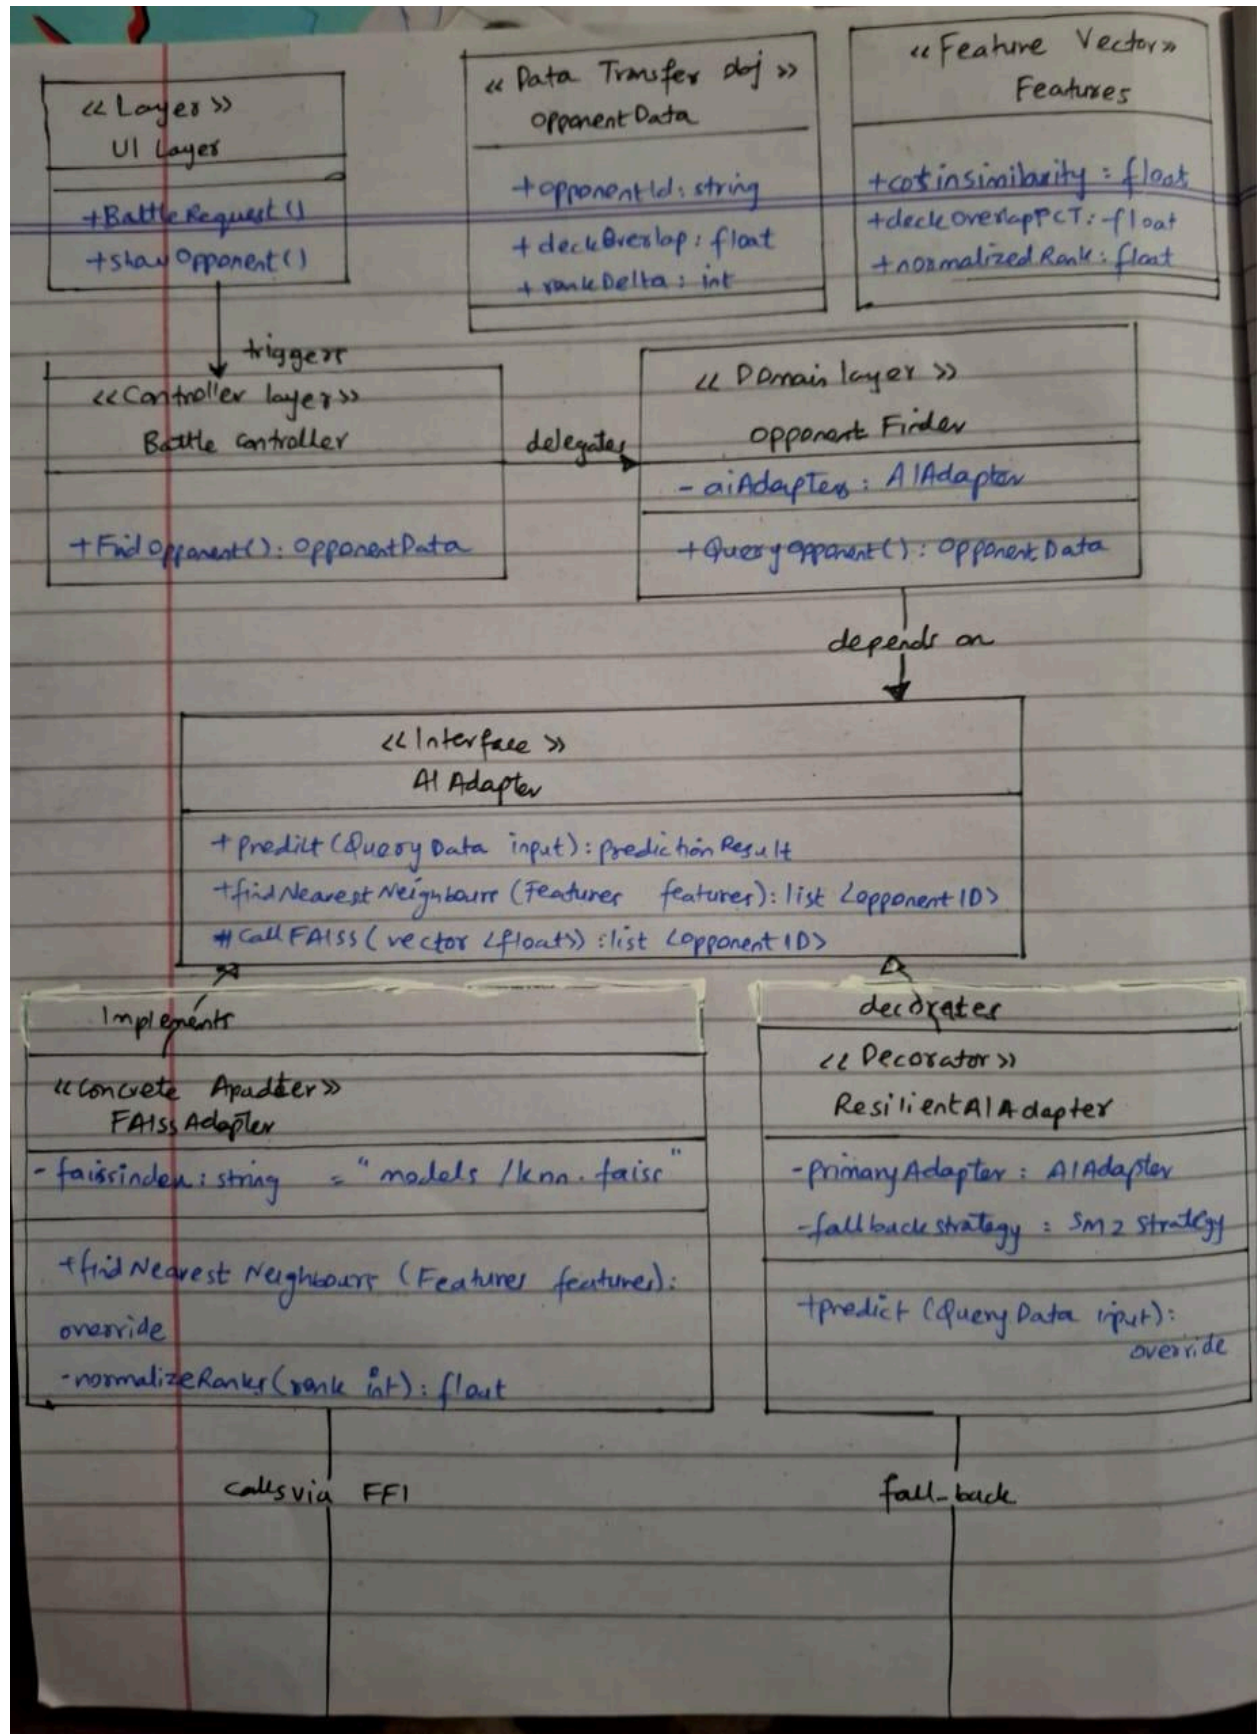 << Layer >>
UI Layer
+BattleRequest()
+show Opponent()
<< Data Transfer Obj >>
OpponentData
+opponentId: string
+ deckOverlap: float
+ rankDelta: int
<< Feature Vector>>
Features
+cosinsimilarity: float
+deckOverlapPCT: float
+normalizedRank: float
triggers
<<Controller layer>>
Battle Controller
+FindOpponent(): OpponentData
delegates
<< Domain layer >>
Opponent Finder
- aiAdapter: AIAdapter
+Query opponent(): OpponentData
depends on
<<Interface >>
AI Adapter
+predict (Query Data input): predictionResult
+findNearestNeighbours (Features features): list <opponentID>
#callFAISS (vector <float>): list <opponentID>
Implements
<<Concrete Apadter>>
FAIss Adapter
- faissindex: string = "models /knn.faiss"
+find Nearest Neighbours (Features features):
override
-normalizeRanks(rank int): float
calls via FFI
decorates
<< Decorator >>
ResilientAIAdapter
-primaryAdapter: AIAdapter
-fallback strategy: SM2 strategy
+predict (Query Data input):
override
fall-back